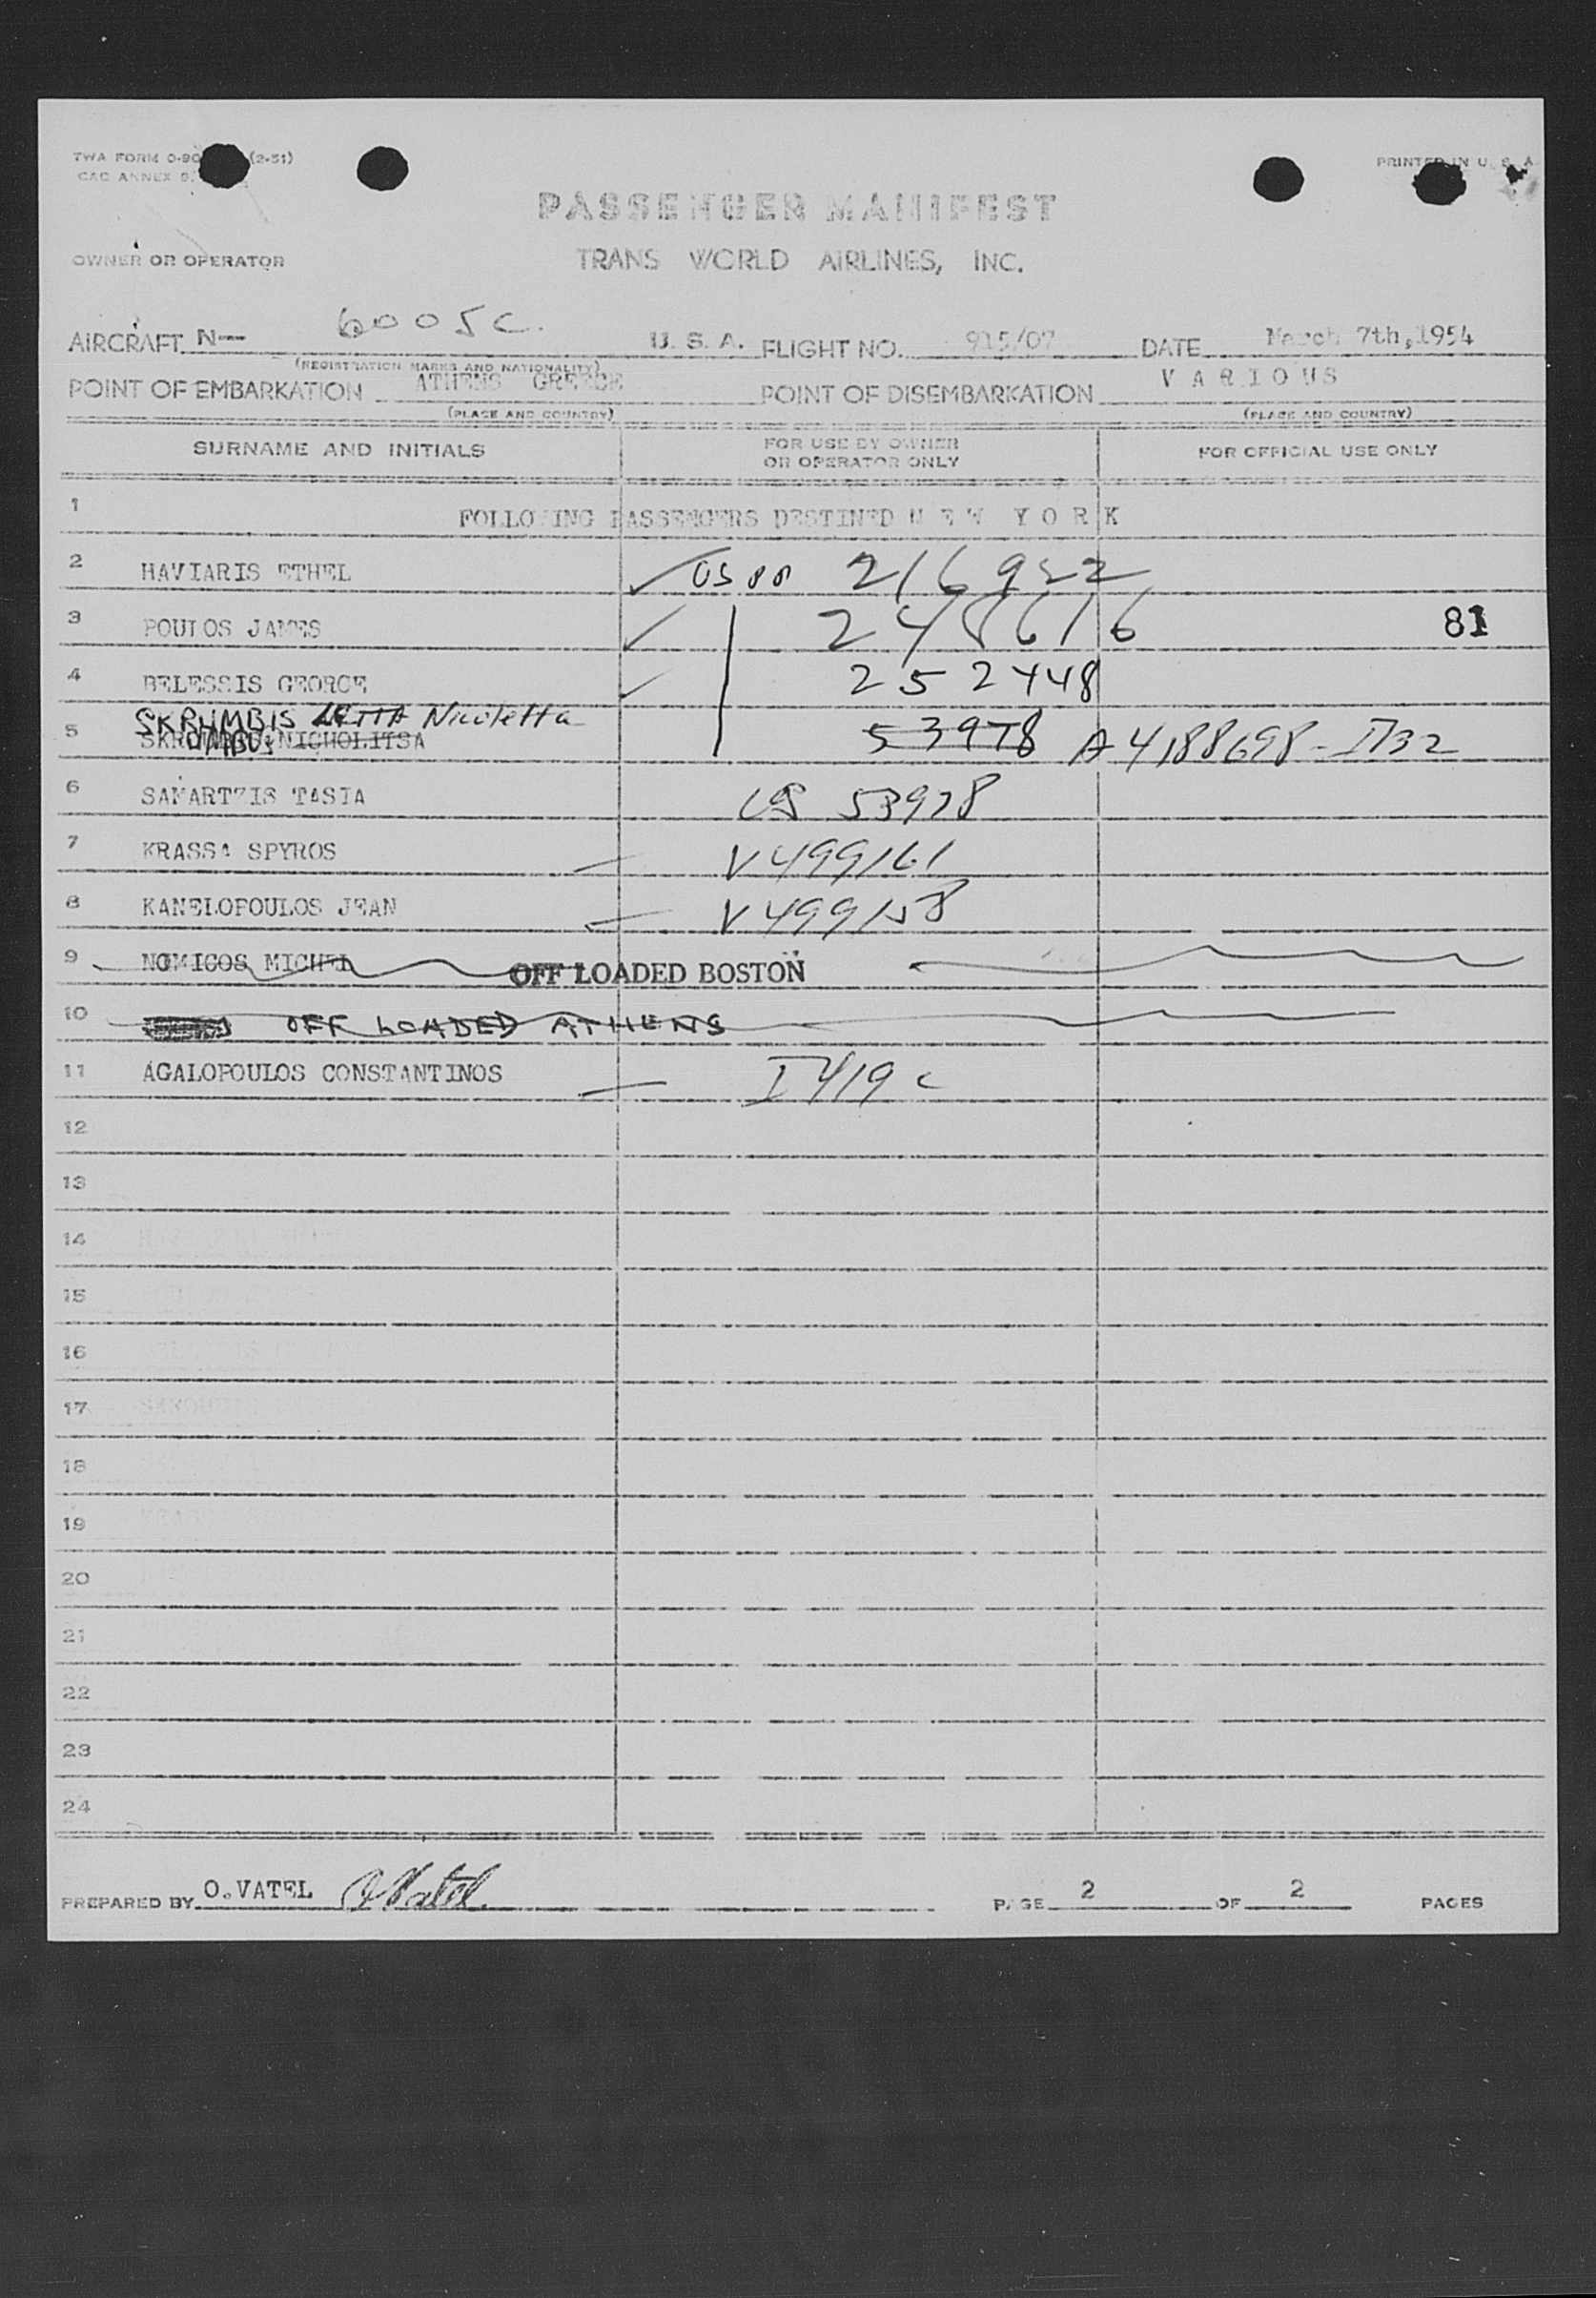 TWA FORM 0-90 (2-51)
CAC ANNEX 9.
PRINTED IN U. S. A.
PASSENGER MANIFEST
OWNER OR OPERATOR TRANS WORLD AIRLINES, INC.
AIRCRAFT N— 6005C. U. S. A. FLIGHT NO. 915/07 DATE March 7th,1954
(REGISTRATION MARKS AND NATIONALITY)
POINT OF EMBARKATION ATHENS GREECE POINT OF DISEMBARKATION V A R I O U S
(PLACE AND COUNTRY) (PLACE AND COUNTRY)
SURNAME AND INITIALS FOR USE BY OWNER OR OPERATOR ONLY FOR OFFICIAL USE ONLY
1 FOLLOWING PASSENGERS DESTINED N E W Y O R K
2 HAVIARIS ETHEL USPP 216922
3 POULOS JAMES 248616 81
4 BELESSIS GEORGE 252448
SKRUMBIS LETTA Nicoletta
5 NICHOLITSA 53978 A4188698-I732
6 SAMARTZIS TASIA US 53978
7 KRASSA SPYROS V499161
8 KANELOPOULOS JEAN V499158
9 NOMICOS MICHEL OFF LOADED BOSTON
10 OFF LOADED ATHENS
11 AGALOPOULOS CONSTANTINOS I419c
12
13
14
15
16
17
18
19
20
21
22
23
24
PREPARED BY O.VATEL OVatel PAGE 2 OF 2 PAGES